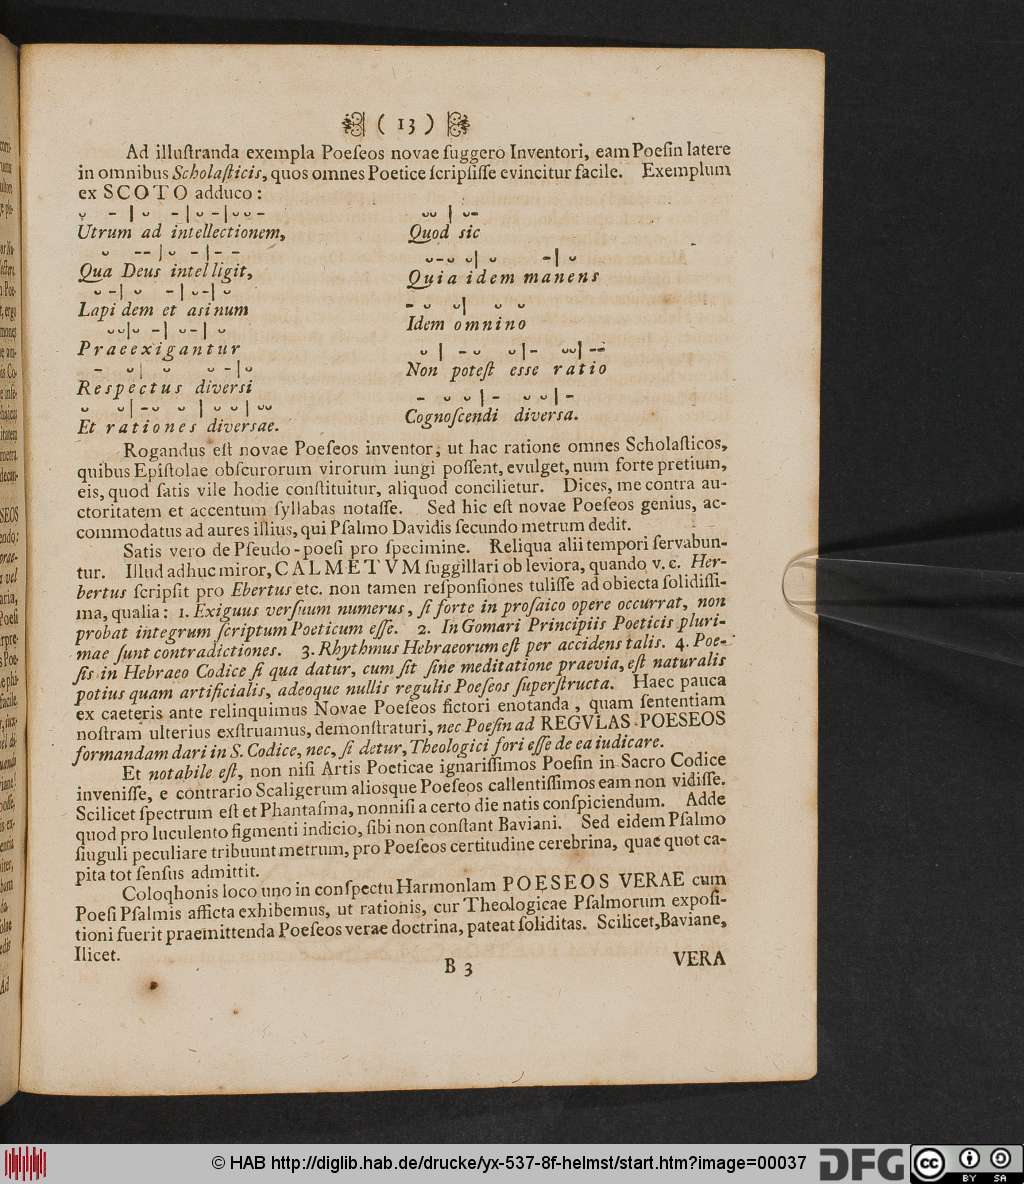 ( 13 )
Ad illuſtranda exempla Poeſeos novae ſuggero Inventori, eam Poeſin latere
in omnibus Scholaſticis, quos omnes Poetice ſcripſiſſe evincitur facile. Exemplum
ex SCOTO adduco:
Utrum ad intellectionem,
Qua Deus intelligit,
Lapidem et asinum
Praeexigantur
Respectus diversi
Et rationes diversae.
Quod sic
Quia idem manens
Idem omnino
Non poteſt esse ratio
Cognoſcendi diversa.
Rogandus eſt novae Poeſeos inventor, ut hac ratione omnes Scholaſticos,
quibus Epiſtolae obſcurorum virorum iungi poſſent, evulget, num forte pretium,
eis, quod ſatis vile hodie conſtituitur, aliquod concilietur. Dices, me contra au-
ctoritatem et accentum ſyllabas notaſſe. Sed hic eſt novae Poeſeos genius, ac-
commodatus ad aures illius, qui Pſalmo Davidis ſecundo metrum dedit.
Satis vero de Pſeudo-poeſi pro ſpecimine. Reliqua alii tempori ſervabun-
tur. Illud adhuc miror, CALMETVM ſuggillari ob leviora, quando v. c. Her-
bertus ſcripſit pro Ebertus etc. non tamen reſponſiones tuliſſe ad obiecta ſolidiſſi-
ma, qualia: 1. Exiguus verſuum numerus, ſi forte in proſaico opere occurrat, non
probat integrum ſcriptum Poeticum eſſe. 2. In Gomari Principiis Poeticis pluri-
mae ſunt contradictiones. 3. Rhythmus Hebraeorum eſt per accidens talis. 4. Poe-
ſis in Hebraeo Codice ſi qua datur, cum ſit ſine meditatione praevia, eſt naturalis
potius quam artificialis, adeoque nullis regulis Poeſeos ſuperſtructa. Haec pauca
ex caeteris ante relinquimus Novae Poeſeos fictori enotanda, quam ſententiam
noſtram ulterius exſtruamus, demonſtraturi, nec Poeſin ad REGVLAS POESEOS
formandam dari in S. Codice, nec, ſi detur, Theologici fori eſſe de ea iudicare.
Et notabile eſt, non niſi Artis Poeticae ignariſſimos Poeſin in Sacro Codice
inveniſſe, e contrario Scaligerum aliosque Poeſeos callentiſſimos eam non vidiſſe.
Scilicet ſpectrum eſt et Phantaſma, nonniſi a certo die natis conſpiciendum. Adde
quod pro luculento figmenti indicio, ſibi non conſtant Baviani. Sed eidem Pſalmo
ſiuguli peculiare tribuunt metrum, pro Poeſeos certitudine cerebrina, quae quot ca-
pita tot ſenſus admittit.
Coloqhonis loco uno in conſpectu Harmonlam POESEOS VERAE cum
Poeſi Pſalmis afficta exhibemus, ut rationis, cur Theologicae Pſalmorum expoſi-
tioni fuerit praemittenda Poeſeos verae doctrina, pateat ſoliditas. Scilicet, Baviane,
Ilicet.
B 3
VERA
© HAB http://diglib.hab.de/drucke/yx-537-8f-helmst/start.htm?image=00037
DFG
cc BY SA